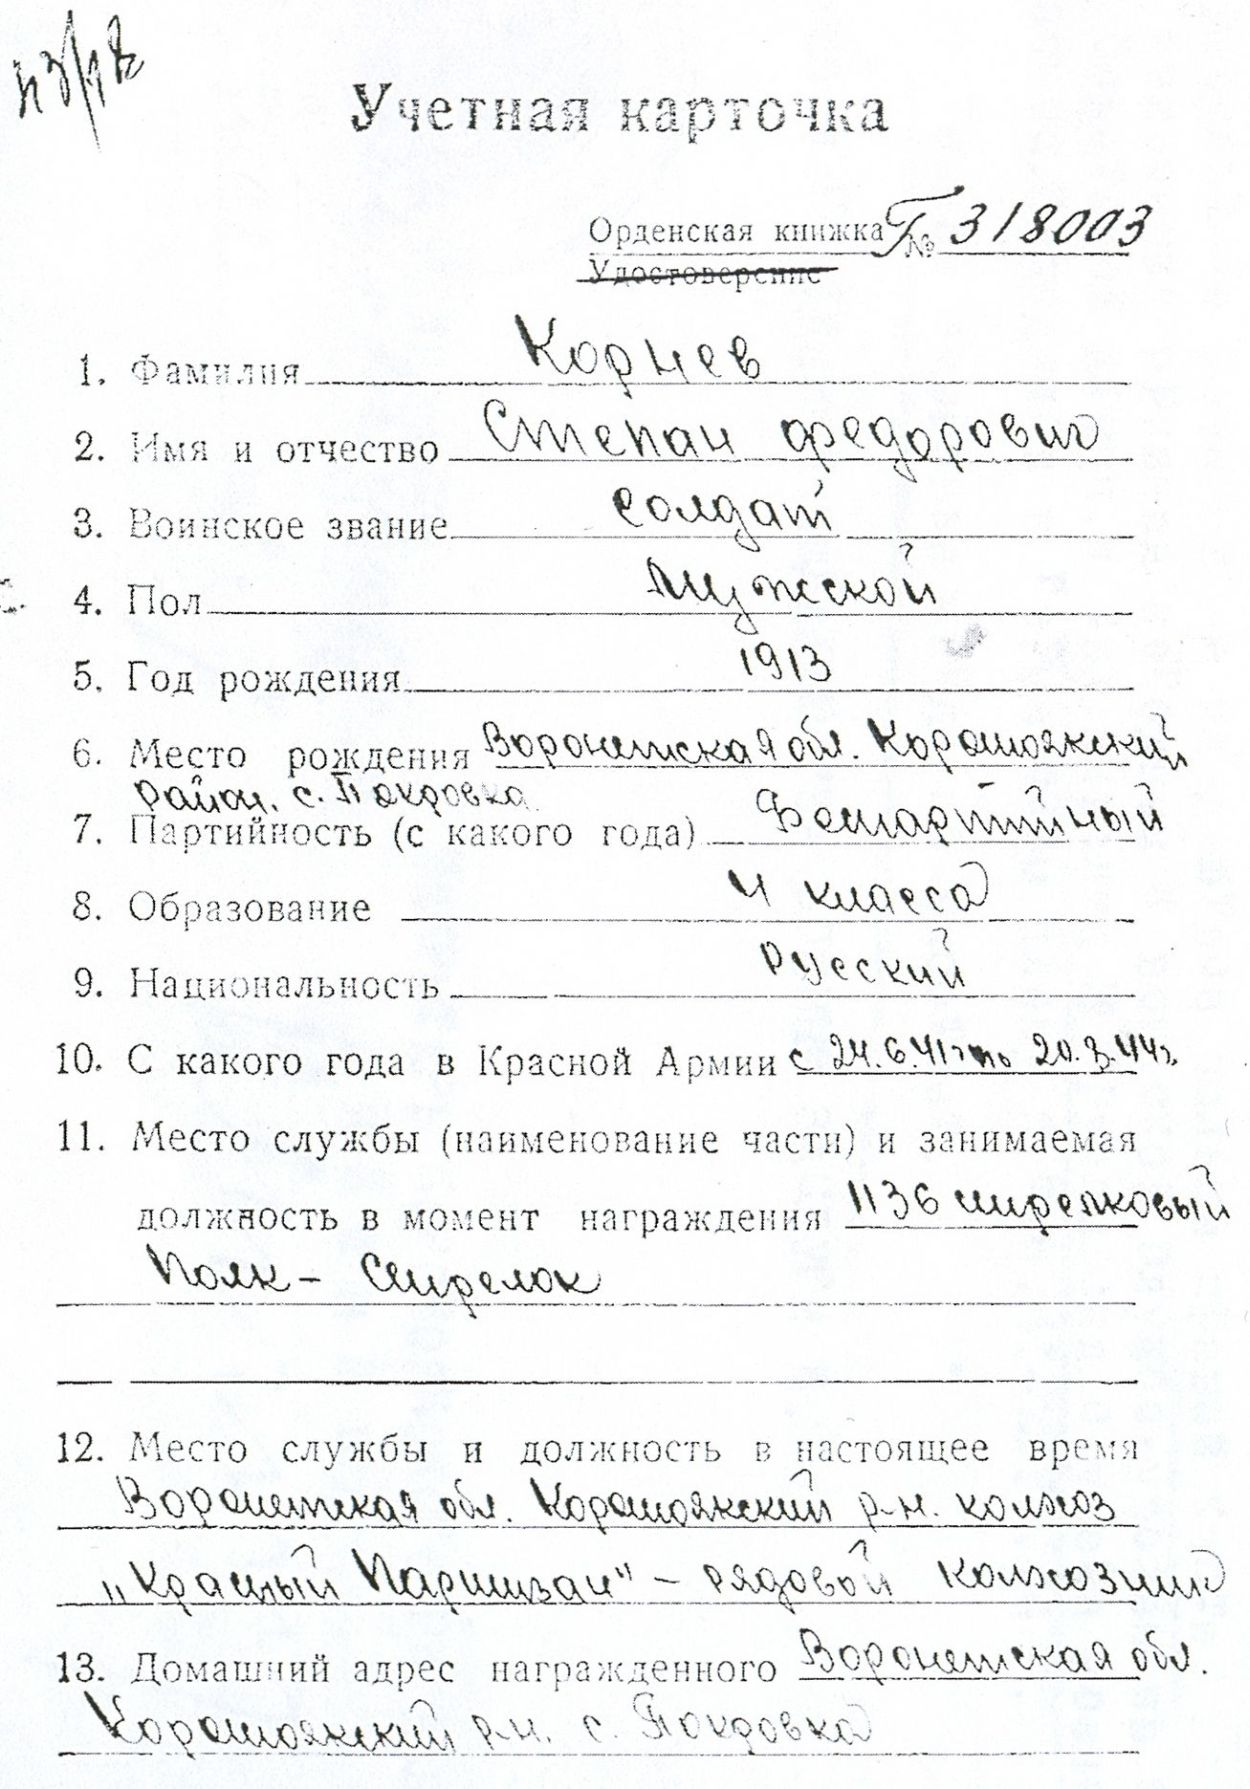 Учетная карточка
Орденская книжка Г № 318003
Удостоверение
1. Фамилия Корнев
2. Имя и отчество Степан Федорович
3. Воинское звание Солдат
4. Пол Мужской
5. Год рождения 1913
6. Место рождения Воронежская обл. Коротоякский
район. с. Покровка
7. Партийность (с какого года) Беспартийный
8. Образование 4 класса
9. Национальность Русский
10. С какого года в Красной Армии с 24.6.41г по 20.3.44г.
11. Место службы (наименование части) и занимаемая
должность в момент награждения 1136 стрелковый
Полк - Стрелок
12. Место службы и должность в настоящее время
Воронежская обл. Коротоякский р-н. колхоз
"Красный Партизан" - рядовой колхозник
13. Домашний адрес награжденного Воронежская обл.
Коротоякский р-н. с. Покровка